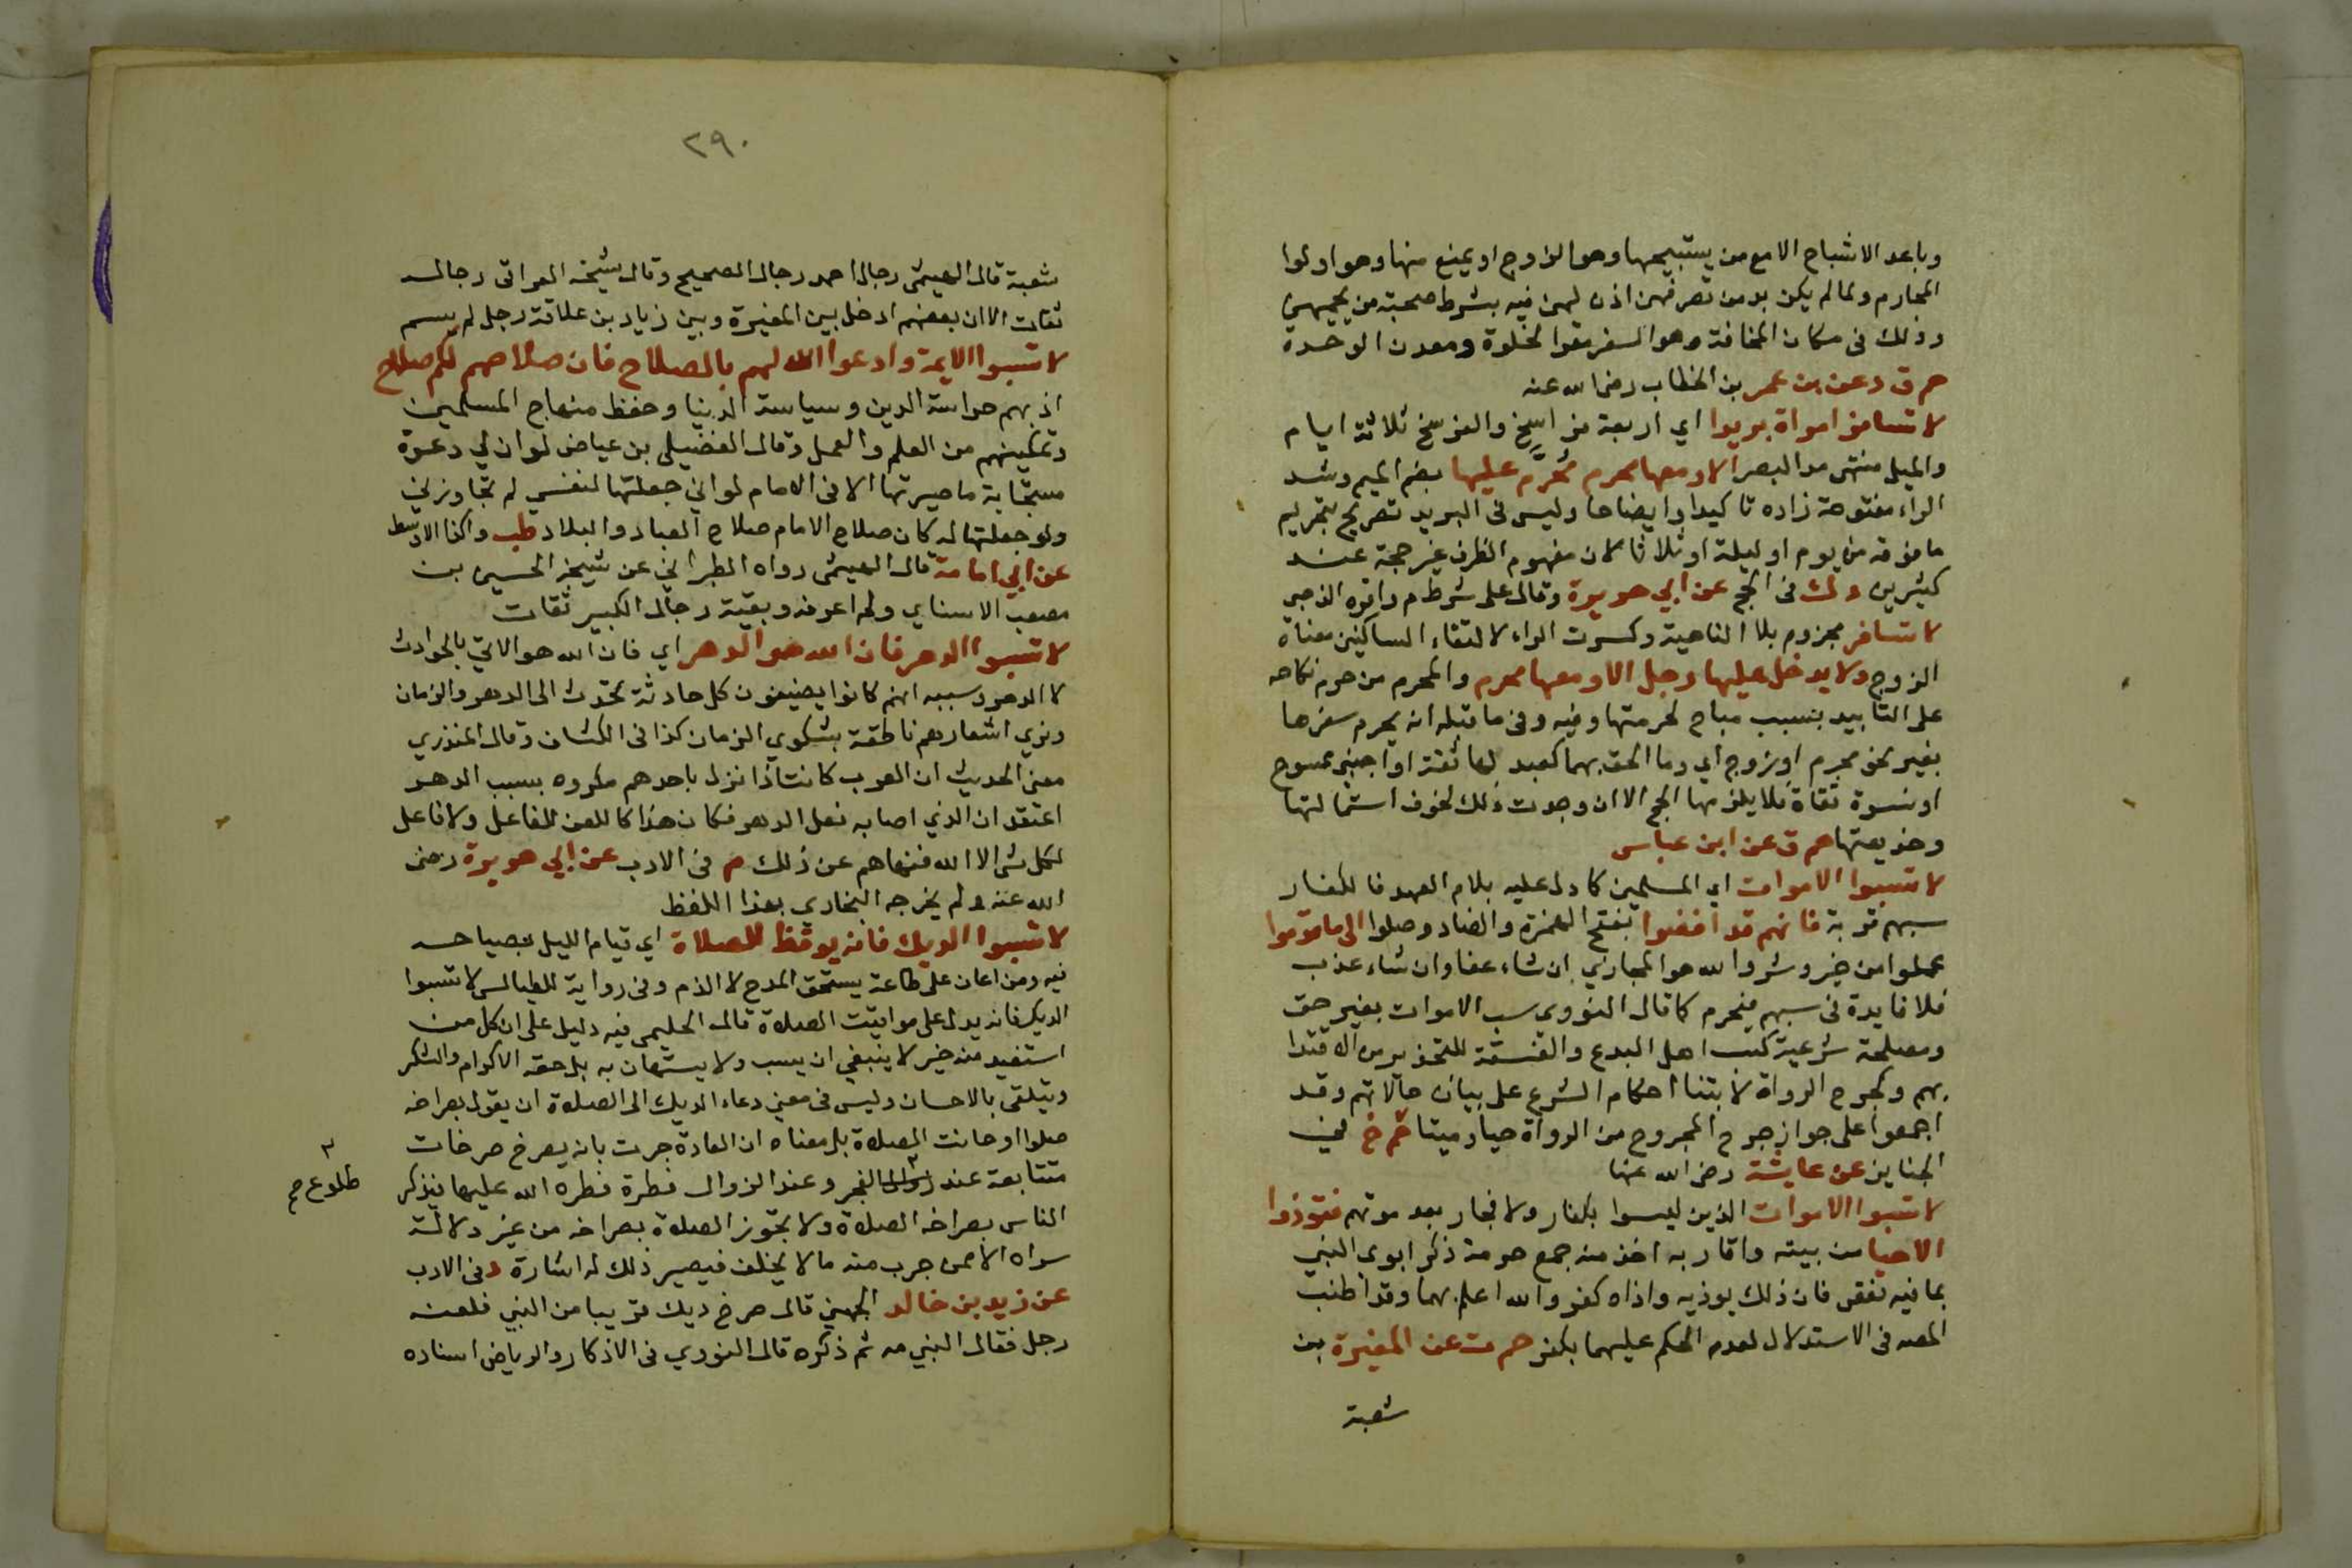 وباعد الاشباح الا مع من يستبيحها وهو الزوج او يمنع منها وهو اولوا
المحارم ولما لم يكن بد من تصرفهن اذن لهن فيه بشرط صحبة من يحميهن
وذلك فى مكان المخافة وهو السفر مقوا لخلوة ومعدن الوحدة
حم ق د عن بن عمر بن الخطاب رضى الله عنه
لا تسافر امراة بريدا اي اربعة فراسخ والفرسخ ثلاثة ايام
والميل منتهى مد البصر الا ومعها محرم مُحَرَّم عليها بضم الميم وشد
الراء مفتوحة زاده تاكيدا وايضاحا وليس فى البريد تصريح بتحريم
ما فوقه من يوم او ليلة او ثلاثا لان مفهوم الظرف غير حجة عند
كثيرين د ك فى الحج عن ابي هويرة وقال على شرط م واقره الذهبى
لا تسافر مجزوم بلا الناهية وكسرت الراء لالتقاء الساكنين معناه
الزوج ولا يدخل عليها رجل الا ومعها محرم والمحرم من حرم نكاحه
على التابيد بسبب مباح لحرمتها وفيه وفى ما قبله انه يحرم سفرها
بغير نحو محرم او زوج اي وما الحق بهما كعبد لها ثقة او اجنبى ممسوح
او نسوة ثقاة فلا يلزمها الحج الا ان وجدت ذلك لخوف استمالتها
وخديعتها حم ق عن ابن عباس
لا تسبوا الاموات اي المسلمين كما دل عليه بلام العهد فالكفار
سبهم قربة فانهم قد افضوا بفتح الهمزة والضاد وصلوا الى ما قدموا
عملوا من خير وشر والله هو المجازي ان شاء عفا وان شاء عذب
فلا فايدة فى سبهم فيحرم كما قال النووى سب الاموات بغير حق
ومصلحة شرعية كسب اهل البدع والفسقة للتحذير من الاقتدا
بهم وكجرح الرواة لابتنا احكام الشرع على بيان حالاتهم وقد
اجمعوا على جواز جرح المجروح من الرواة حيا وميتا حم خ فى
الجنايز عن عايشة رضى الله عنها
لا تسبوا الاموات الذين ليسوا بكفار ولا فجار بعد موتهم فتوذوا
الاحيا من بيته واقاربه اخذ منه جمع حرمة ذكر ابوي النبي
بما فيه نقص فان ذلك يوذيه واذاه كفر والله اعلم بهما وقد اطنب
المصه فى الاستدلال لعدم الحكم عليهما بكفر حم ت عن المغيرة بن
شعبة
٢٩٠
شعبة قال الهيثمى رجال احمد رجال الصحيح وقال شيخه العراقى رجاله
ثقات الا ان بعضهم ادخل بين المغيرة وبين زياد بن علاقة رجل لم يسم
لا تسبوا الايمة وادعوا الله لهم بالصلاح فان صلاحهم لكم صلاح
اذ بهم حراسة الدين وسياسة الدنيا وحفظ منهاج المسلمين
وتمكينهم من العلم والعمل وقال الفضيل بن عياض لو ان لي دعوة
مستجابة ما صيرتها الا فى الامام لو اني جعلتها لنفسي لم تجاوزني
ولو جعلتها له كان صلاح الامام صلاح العباد والبلاد طب وكذا الاوسط
عن ابي امامة قال الهيثمى رواه الطبراني عن شيخه الحسين بن
مصعب الاسناي ولم اعرفه وبقية رجال الكبير ثقات
لا تسبوا الدهر فان الله هو الدهر اي فان الله هو الاتي بالحوادث
لا الدهر وسببه انهم كانوا يضيفون كل حادثة تحدث الى الدهر والزمان
وترى اشعارهم ناطقة بشكوي الزمان كذا فى الكشاف وقال المنذري
معنى الحديث ان العرب كانت اذا نزل باحدهم مكروه بسبب الدهر
اعتقد ان الذي اصابه فعل الدهر فكان هذا كاللعن للفاعل ولا فاعل
لكل شى الا الله فنهاهم عن ذلك م فى الادب عن ابي هويرة رضى
الله عنه ولم يخرجه البخاري بهذا اللفظ
لا تسبوا الديك فانه يوقظ للصلاة اي قيام الليل بصياحه
فيه ومن اعان على طاعة يستحق المدح لا الذم وفى رواية للطيالسى لا تسبوا
الديك فانه يدل على مواقيت الصلاة قال الحليمى فيه دليل على ان كل من
استفيد منه خير لا ينبغي ان يسب ولا يستهان به بل حقه الاكرام والشكر
ويتلقى بالاحسان وليس فى معنى دعاء الديك الى الصلاة ان يقول بصراخه
صلوا او حانت الصلاة بل معناه ان العادة جرت بانه يصرخ صرخات
متتابعة عند الفجر وعند الزوال فطرة فطره الله عليها فيذكر
٢ طلوع صح
الناس بصراخه الصلاة ولا يجوز الصلاة بصراخه من غير دلالة
سواه الا من جرب منه ما لا يخلف فيصير ذلك له اشارة د فى الادب
عن زيد بن خالد الجهني قال صرخ ديك قريبا من النبي فلعنه
رجل فقال النبي مه ثم ذكره قال النووي فى الاذكار والرياض اسناده